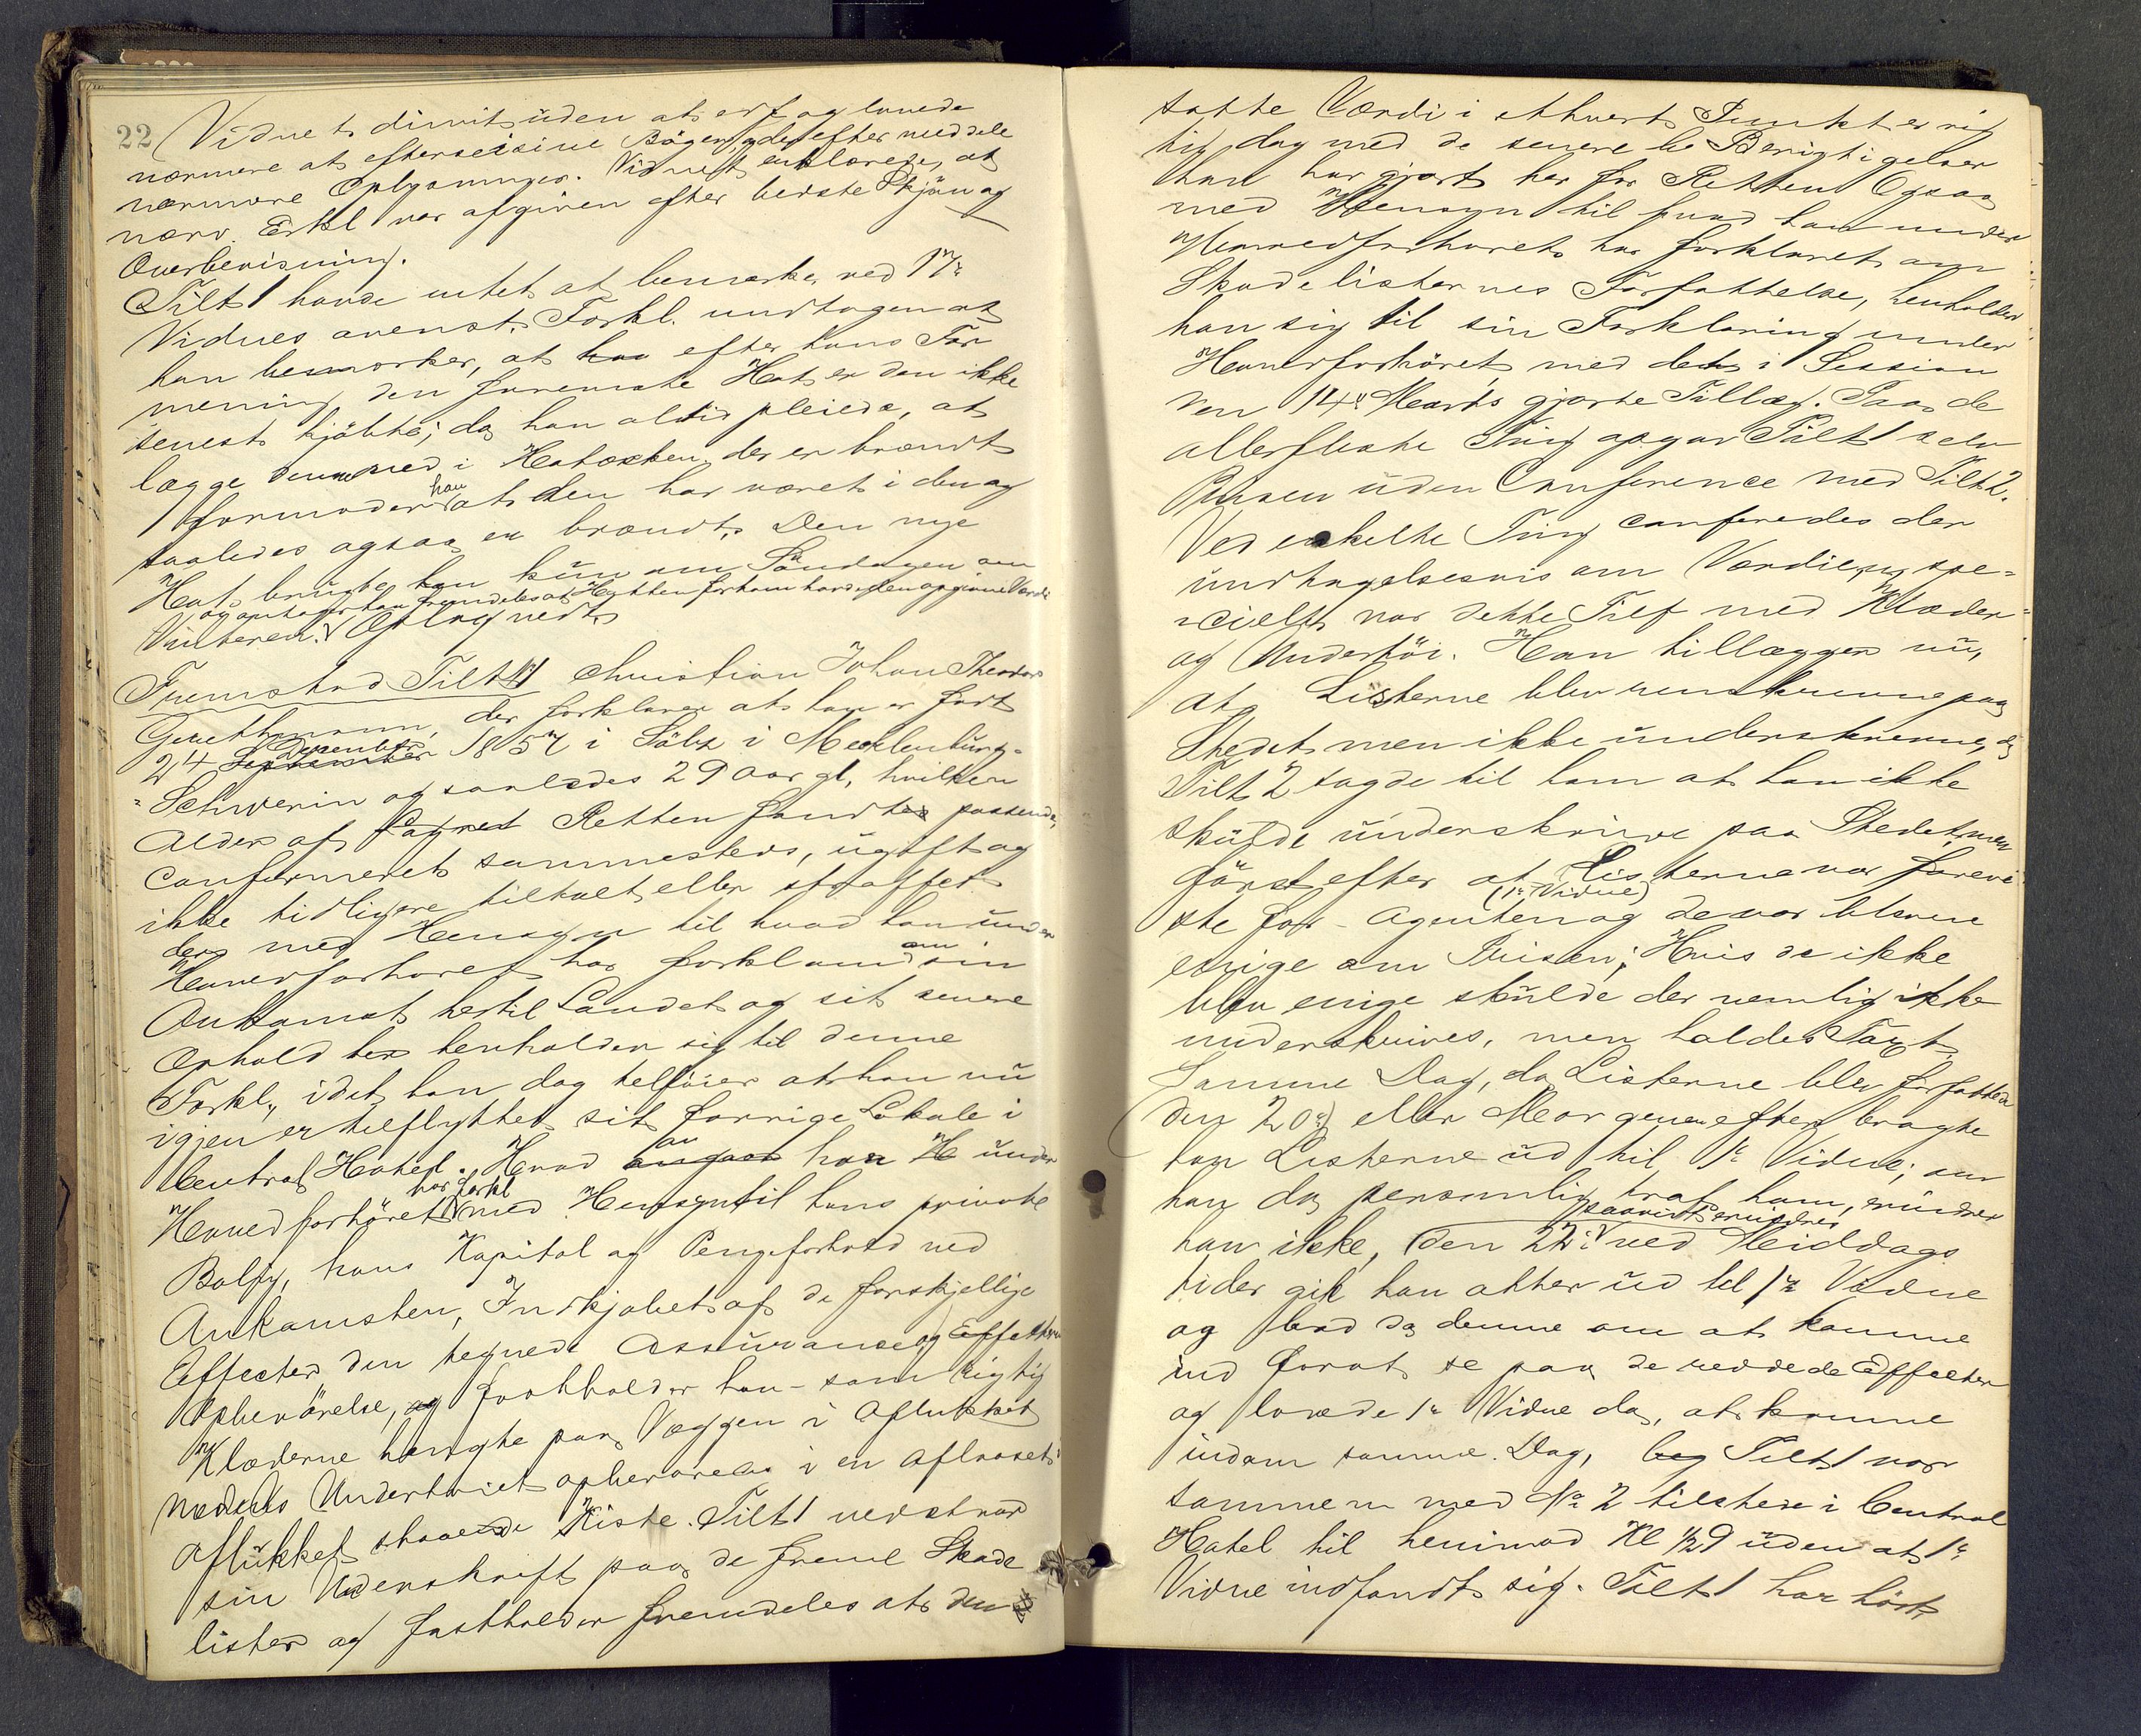 22
Vidnet dimit. uden at edf. og lovede
nærmere at efterse sine Bøger, og derefter meddele
nærmere Oplysninger. Vidnet erklærede, at
nærv. Erkl var afgiven efter bedste Skjøn og
Overbevisning.
Tilt 1 havde intet at bemærke ved 17de
Vidnes ovenst. Forkl. undtagen at
han bemærker, at efter hans For
mening den fremviste Hat er den ikke
senest kjøbte; da han altid pleiede, at
lægge denne ned i Hatæsken, der er brændt
formoder han at den har været i den og
saaledes ogsaa er brændt. Den nye
Hat brugte han kun om Søndagen om
og antager han fremdeles at Hatten for ham havde den opgivne Værdi
Vinteren. Oplæst vedt.
Fremstod Tilt 1 Christian Johan Theodor
der forklarer at han er født
24 December 1857 i Sülz i Mecklenburg-
Schwerin og saaledes 29 Aar gl, hvilken
Alder af Retten fandtes passende,
Confirmeret sammesteds, ugift og
ikke tidligere tiltalt eller straffet
der med Hensyn til hvad han under
Heinredforhøret har forklaret om sin
Ankomst hertil Landet og sit senere
Ophold her henholder sig til denne
Forkl., idet han dog tilføier at han nu
igjen er tilflyttet sit forrige Lokale i
Central Hotel. Hvad an han under
Heinredforhøret har forkl med Hensyn til hans private
Bolig, hans Kapital og Pengeforhold ved
Ankomsten, Indkjøbet af de forskjellige
Effecter den tegnede Assurance og Effekternes
Opbevarelse, fastholder han som rigtig
Klæderne hængte paa Væggen i Aflukket
medens Undertøiet opbevaredes i en aflaaset i
Aflukket staaende Kiste. Tilt 1 vedstod
sin Underskrift paa de freml Skade
lister og fastholder fremdeles at den
satte Værdi i ethvert Punkt er rig
tig dog med de senere Berigtigelser
han har gjort her for Retten Ogsaa
med Hensyn til hvad han under
Heinredforhøret har forklaret om
Skadelisternes Forfattelse, henholder
han sig til sin Forklaring under
Heinredforhøret med det i Session
den 14de Marts gjorte Tillæg. Paa de
allerfleste Ting opgav Tilt 1 selv
Prisen uden Conference med Tilt 2.
Ved enkelte Ting confereredes der
undtagelsesvis om Værdien, og spe-
cielt var dette Tilf med Klæder
og Undertøi. Han tillægger nu,
at Listerne blev renskrevne paa
Stedet men ikke underskrevne, da
Tilt 2 sagde til ham at han ikke
skulde underskrive paa Stedet, men
først efter at Listerne var forevi
ste for Agenten (1ste Vidne) og de var blevne
enige om Prisen; Hvis de ikke
blev enige skulde der nemlig ikke
underskrives, men holdes Taxt.
Samme Dag, da Listerne blev forfattede
den 20de eller Morgenen efter bragte
han Listerne ud til 1ste Vidne; om
han da personlig traf ham, erindrer
han ikke, Den 22de saavidt erindres ved Middags
tider gik han atter ud til 1ste Vidne
og bad da denne om at komme
ind forat se paa de reddede Effecter
og lovede 1ste Vidne da, at komme
indom samme Dag, Tilt 1 var
sammen med No 2 tilstede i Central
Hotel til henimod Kl 1/2 9 uden at 1ste
Vidne indfandt sig. Tilt 1 har hørt